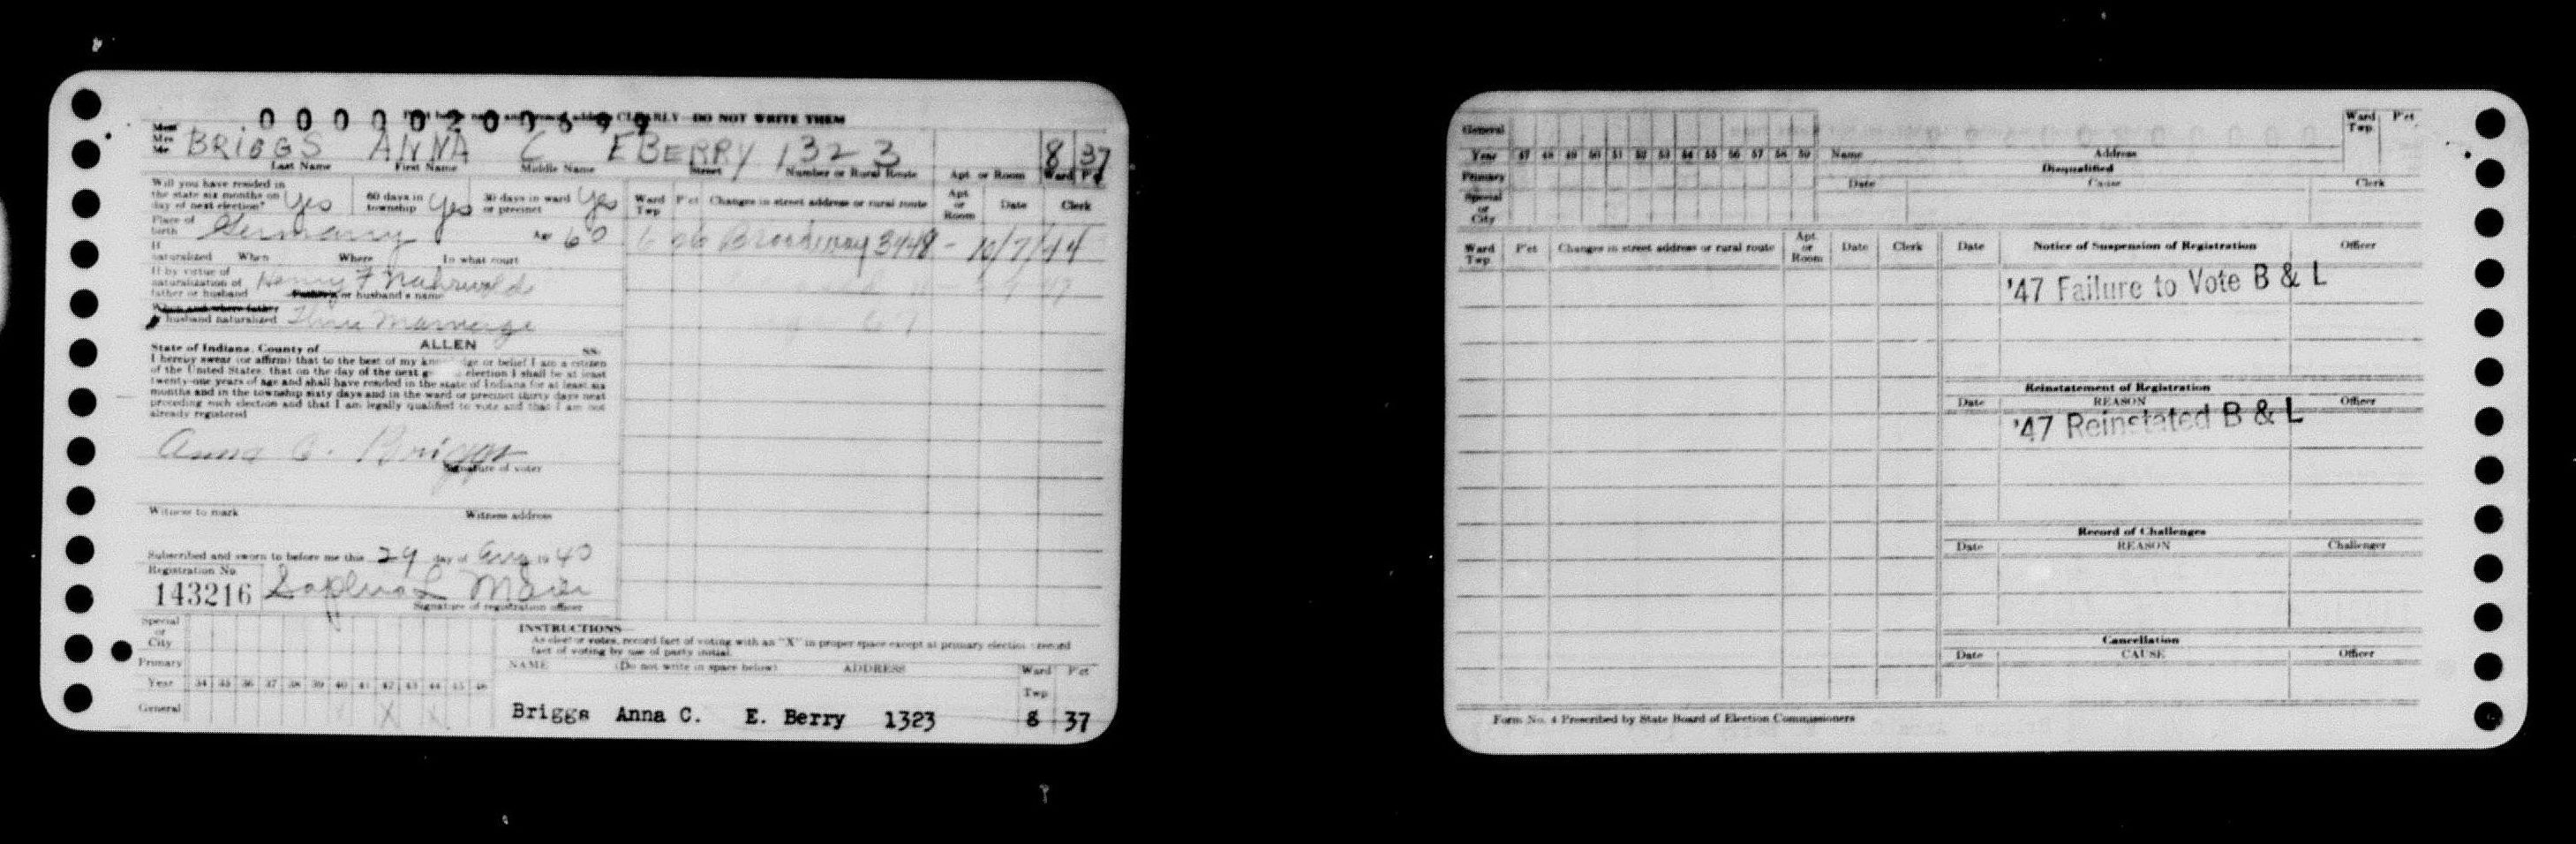 0 0 0 0 0 2 0 0 6 9 9
CLEARLY DO NOT WRITE THEM
Miss
Mrs
Mr
BRIGGS ANNA C E BERRY 1323 8 37
Last Name First Name Middle Name Street Number or Rural Route Apt. or Room Ward P'ct
Will you have resided in
the state six months on
day of next election? Yes
60 days in
township Yes
30 days in ward
or precinct Yes
Place of
birth Germany Age 60
If
naturalized When Where In what court
If by virtue of
naturalization of
father or husband Henry F
Father's or husband's name
When and where father
husband naturalized Thru Marriage
State of Indiana, County of ALLEN SS:
I hereby swear (or affirm) that to the best of my or belief I am a citizen
of the United States, that on the day of the next election I shall be at least
twenty-one years of age and shall have resided in the state of Indiana for at least six
months and in the township sixty days and in the ward or precinct thirty days next
preceding such election and that I am legally qualified to vote and that I am not
already registered
Anna C. Briggs
Signature of voter
Witness to mark Witness address
Subscribed and sworn to before me this 29 day of Aug 19 40
Registration No.
143216
Signature of registration officer
Ward
Twp P'ct Changes in street address or rural route Apt.
or
Room Date Clerk
6 Broadway 3448 - 10/7/44
Special
or
City
Primary
Year 34 35 36 37 38 39 40 41 42 43 44 45 46
General X X
INSTRUCTIONS
As elector votes, record fact of voting with an "X" in proper space except at primary election record
fact of voting by use of party initial.
NAME (Do not write in space below) ADDRESS Ward
Twp P'ct
Briggs Anna C. E. Berry 1323 8 37
General
Year 47 48 49 50 51 52 53 54 55 56 57 58 59
Primary
Special
or
City
Name Address Ward
Twp P'ct
Disqualified
Date Cause Clerk
Ward
Twp P'ct Changes in street address or rural route Apt.
or
Room Date Clerk
Date Notice of Suspension of Registration Officer
'47 Failure to Vote B & L
Reinstatement of Registration
Date REASON Officer
'47 Reinstated B & L
Record of Challenges
Date REASON Challenger
Cancellation
Date CAUSE Officer
Form No. 4 Prescribed by State Board of Election Commissioners